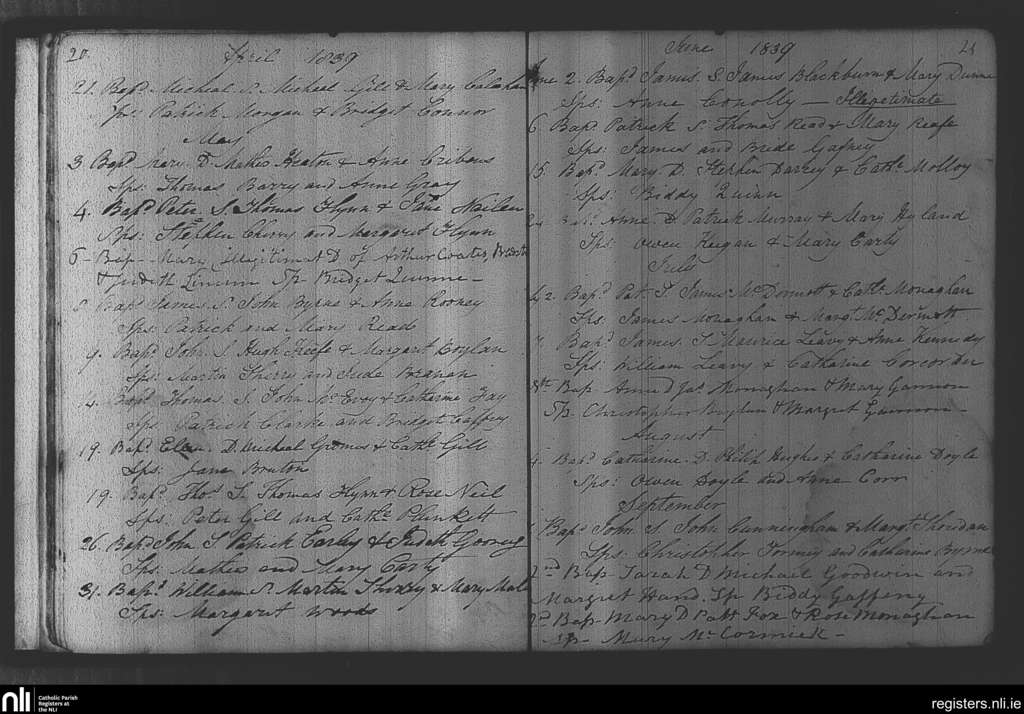 20 April 1839
21. Bapd. Micheal S. Micheal Gill & Mary Calahan
Sps: Patrick Morgan & Bridget Connor
May
3 Bapd Mary D. Mathew Heaton & Anne Cribons
Sps: Thomas Barry and Anne Gray
4. Bapd Peter S. Thomas Flynn & Jane
Sps: Stephen Cherry and Margaret Flynn
6 - Bap - Mary illegitimat D of Arthur Coates,
& Judith Sp Bridget Quinne -
Bapd James S. John Byrne & Anne Rooney
Sps: Patrick and Mary Read
9. Bapd John. S. Hugh Keefe & Margaret Boylan
Sps: Martin Sherry and Jude Branan
Bapd Thomas S. John McEvoy & Catherine Fay
Sps: Patrick Clarke and Bridget Caffrey
19. Bapd D. Micheal & Cathe Gill
Sps: Jane Bruton
19. Bapd Thos S. Thomas Flynn & Rose Neil
Sps: Peter Gill and Cathe Plunkett
26. Bapd John S Patrick Carty & Judath
Sps: Mathew and Mary Carty
31. Bapd William S. Martin Sherry & Mary
Sps: Margaret Woods
June 1839 21
June 2. Bapd James S. James Blackburn & Mary Dunne
Sps: Anne Conolly — Illegetimate
6. Bapd Patrick S. Thomas Read & Mary Keafe
Sps: James and Bride Gafney
15. Bapd Mary D. Stephen Darcey & Cathe Molloy
Sps: Biddy Quinn
Anne D Patrick Murray & Mary Hyland
Sps: Owen Keegan & Mary Carty
July
2. Bapd Patt S. James McDermott & Cathe Monaghan
Sps. James Monaghan & Margt McDermott
7. Bapd James. S. Maurice Leavy & Anne Kennedy
Sps. William Leavy & Catharine Corcoran
8th Bap Ann D Jas Monaghan & Mary Gannon
Sp. Christopher Boylan & Margret Gannon -
August
4. Bapd Catharine. D. Philip Hughes & Catharine Doyle
Sps: Owen Doyle and Anne Corr
September
1st Bapd John S. John Cunningham & Margt Sheridan
Sps. Christopher Tormey and Catharine Byrne
2nd Bap Sarah D Michael Goodwin and
Margret Hand. Sp Biddy Gafferny
Bap Mary D Patt Fox & Rose Monaghan
Sp - Mary McCormick -
nli Catholic Parish
Registers at
the NLI
registers.nli.ie